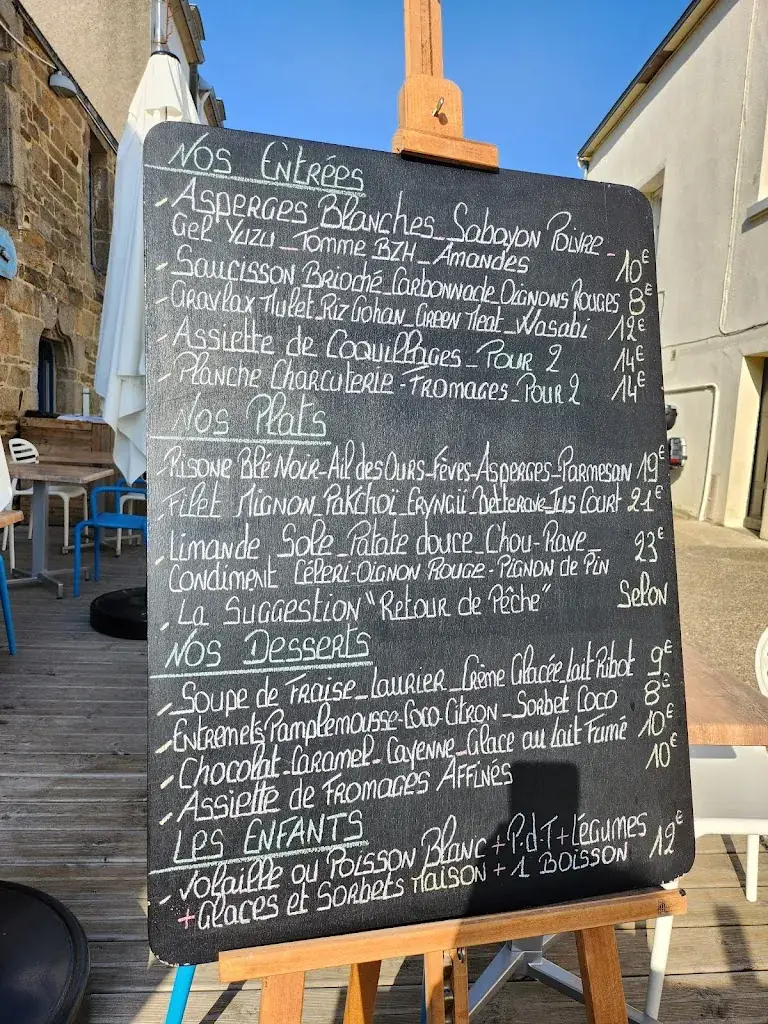 Nos Entrées
- Asperges Blanches_Sabayon Poivre -
Gel Yuzu_Tomme BZH_Amandes 10€
- Saucisson Brioché_Carbonnade Oignons Rouges 8€
- Gravlax Mulet_Riz Gohan_Green Meat_Wasabi 12€
- Assiette de Coquillages_Pour 2 14€
- Planche Charcuterie-Fromages_Pour 2 14€
Nos Plats
- Risone Blé Noir-Ail des Ours-Fèves-Asperges-Parmesan 19€
- Filet Mignon_Pakchoï_Eryngii_Betterave_Jus Court 21€
- Limande Sole_Patate douce_Chou-Rave 23€
Condiment Céleri-Oignon Rouge-Pignon de Pin
- La Suggestion "Retour de Pêche" Selon
Nos Desserts
- Soupe de Fraise_Laurier_Crème Glacée lait Ribot 9€
- Entremets Pamplemousse-Coco-Citron_Sorbet Coco 8€
- Chocolat-Caramel_Cayenne_Glace au lait Fumé 10€
- Assiette de Fromages Affinés 10€
Les Enfants
- Volaille ou Poisson Blanc + P.d.T + Légumes
+ Glaces et Sorbets Maison + 1 Boisson 12€